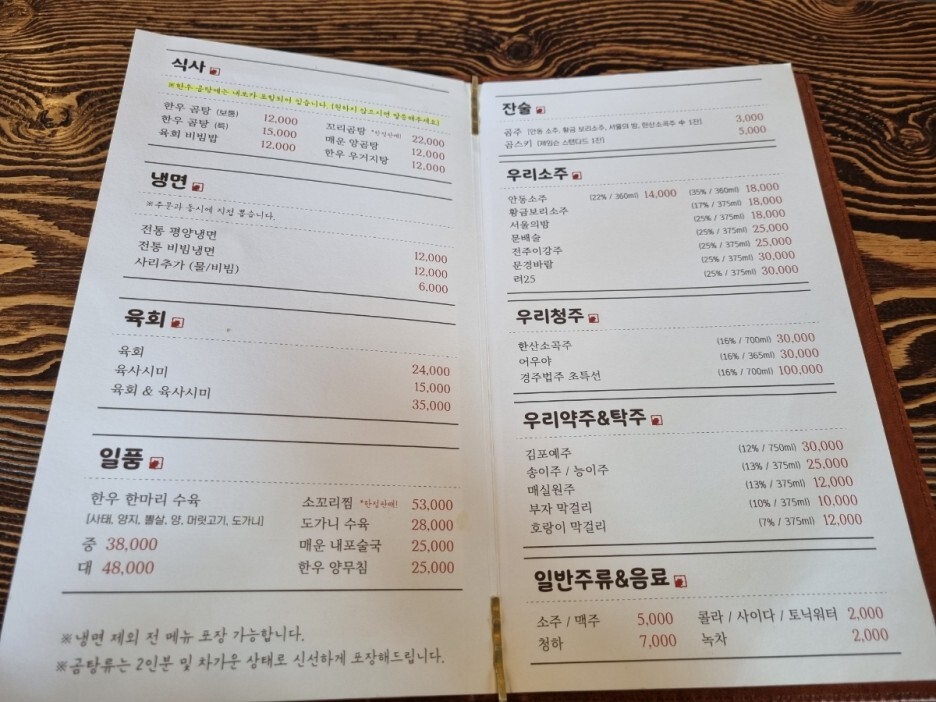 식사
※한우 곰탕에는 내포가 포함되어 있습니다. (원하지 않으시면 말씀해주세요)
한우 곰탕 (보통) 12,000
한우 곰탕 (특) 15,000
육회 비빔밥 12,000
꼬리곰탕 *한정판매! 22,000
매운 양곰탕 12,000
한우 우거지탕 12,000
냉면
※주문과 동시에 직접 뽑습니다.
전통 평양냉면 12,000
전통 비빔냉면 12,000
사리추가 (물/비빔) 6,000
육회
육회 24,000
육사시미 15,000
육회 & 육사시미 35,000
일품
한우 한마리 수육
[사태, 양지, 뽈살, 양, 머릿고기, 도가니]
중 38,000
대 48,000
소꼬리찜 *한정판매! 53,000
도가니 수육 28,000
매운 내포술국 25,000
한우 양무침 25,000
※냉면 제외 전 메뉴 포장 가능합니다.
※곰탕류는 2인분 및 차가운 상태로 신선하게 포장해드립니다.
잔술
곰주 [안동 소주, 황금 보리소주, 서울의 밤, 한산소곡주 中 1잔] 3,000
곰스키 [제임슨 스탠다드 1잔] 5,000
우리소주
안동소주 (22% / 360ml) 14,000 (35% / 360ml) 18,000
황금보리소주 (17% / 375ml) 18,000
서울의밤 (25% / 375ml) 18,000
문배술 (25% / 375ml) 25,000
전주이강주 (25% / 375ml) 25,000
문경바람 (25% / 375ml) 30,000
려25 (25% / 375ml) 30,000
우리청주
한산소곡주 (16% / 700ml) 30,000
어우야 (16% / 365ml) 30,000
경주법주 초특선 (16% / 700ml) 100,000
우리약주&탁주
김포예주 (12% / 750ml) 30,000
송이주 / 능이주 (13% / 375ml) 25,000
매실원주 (13% / 375ml) 12,000
부자 막걸리 (10% / 375ml) 10,000
호랑이 막걸리 (7% / 375ml) 12,000
일반주류&음료
소주 / 맥주 5,000
청하 7,000
콜라 / 사이다 / 토닉워터 2,000
녹차 2,000